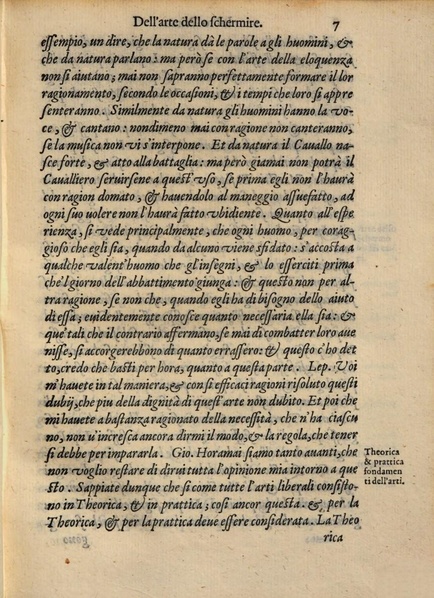 Dell'arte dello schermire. 7
essempio, un dire, che la natura dà le parole a gli huomini, &
che da natura parlano: ma però se con l'arte della eloquenza
non si aiutano; mai non sapranno perfettamente formare il lor
ragionamento, secondo le occasioni, & i tempi che loro si appre
senteranno. Similmente da natura gli huomini hanno la vo-
ce, & cantano: nondimeno mai con ragione non canteranno,
se la musica non vi s'interpone. Et da natura il Cauallo na-
sce forte, & atto alla battaglia: ma però giamai non potrà il
Caualliero seruirsene a quest'vso, se prima egli non l'haurà
con ragion domato, & hauendolo al maneggio assuefatto, ad
ogni suo uolere non l'haurà fatto vbidiente. Quanto all'espe
rienza, si vede principalmente, che ogni huomo, per corag-
gioso che egli sia, quando da alcuno viene sfidato: s'accosta a
qualche valent'huomo che gl'insegni, & lo esserciti prima
che'l giorno dell'abbattimento giunga: & questo non per al-
tra ragione, se non che, quando egli ha di bisogno dello aiuto
di essa; euidentemente conosce quanto necessaria ella sia: &
que'tali che il contrario affermano, se mai di combatter loro aue
nisse, si accorgerebbono di quanto errassero: & questo c'ho det
to, credo che basti per hora, quanto a questa parte. Lep. Voi
m'hauete in tal maniera, & con sì efficaci ragioni risoluto questi
dubij, che piu della dignità di quest'arte non dubito. Et poi che
mi hauete a bastanza ragionato della necessità, che n'ha ciascu
no, non u'incresca ancora dirmi il modo, & la regola, che tener
si debbe per impararla. Gio. Horamai siamo tanto auanti, che
non voglio restare di dirui tutta l'opinione mia intorno a que
sto. Sappiate dunque che si come tutte l'arti liberali consisto-
no in Theorica, & in prattica; così ancor questa. & per la
Theorica, & per la prattica deue essere considerata. La Theo
rica
Theorica
& prattica
fondamen
ti dell'arti.